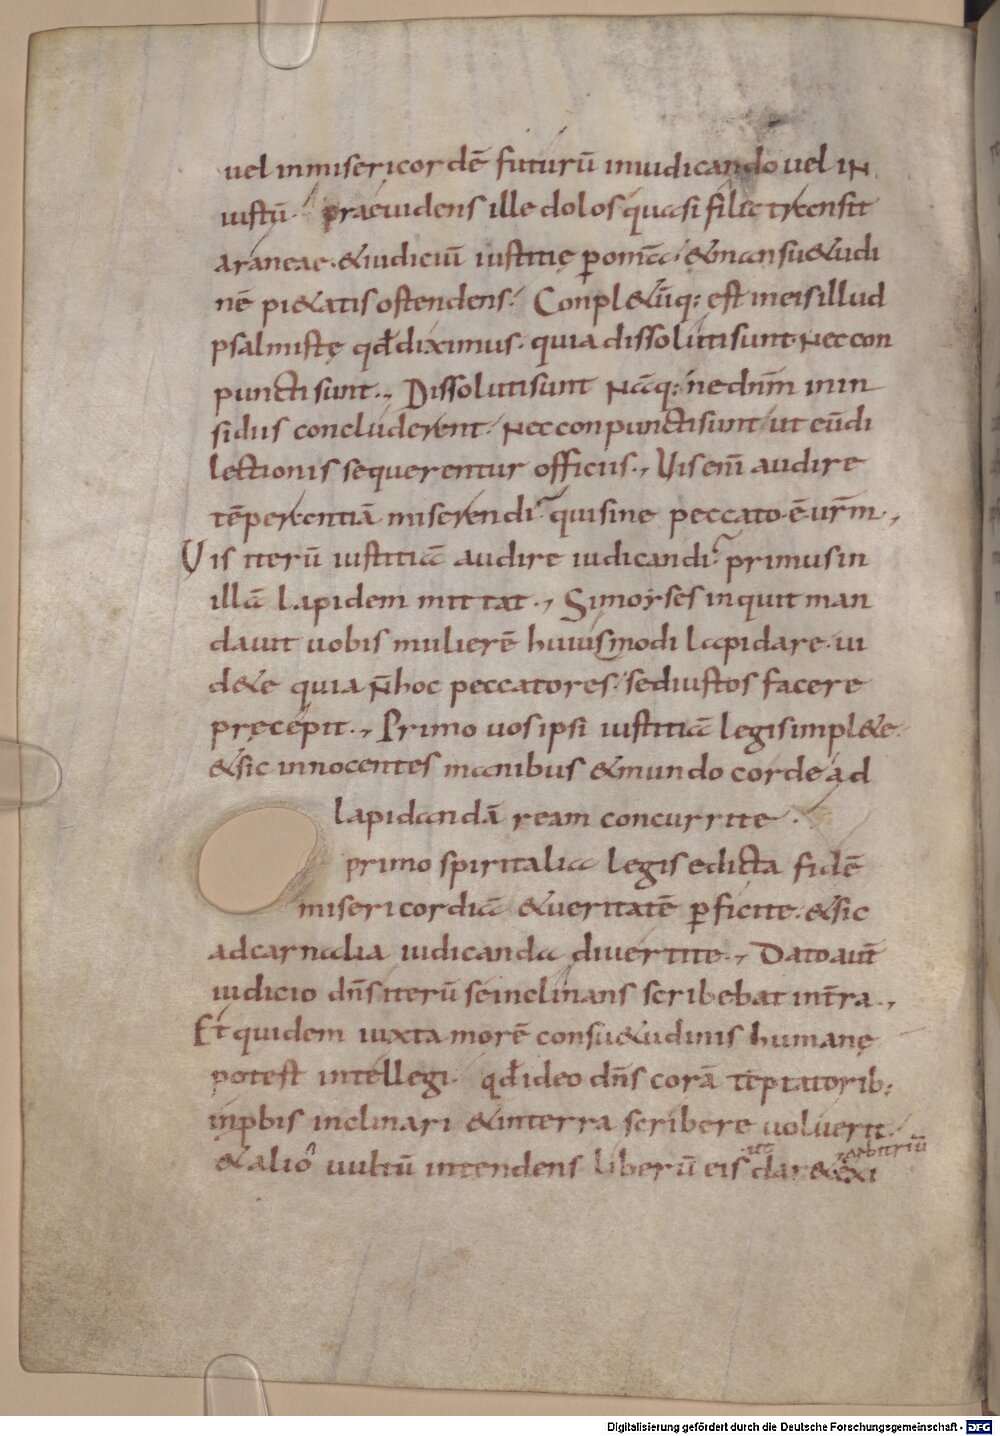 uel inmisericordē futurū iniudicando uel in
iustū. praeuidens ille dolos quasi fila transit
araneae. & iudiciū iustitię ꝑ omīa. & mansu&udi
nē pi&atis ostendens. Conpl&ūq; est in eis illud
psalmistę qđ diximus. quia dissoluti sunt nec con
puncti sunt., Dissoluti sunt nāq; ne dnm̄ in in
sidiis concluderent. nec conpuncti sunt ut eū di
lectionis sequerentur officiis., Vis enī audire
tēperantiā miserendi? qui sine peccato ē urm̄.,
Vis iterū iustitiā audire iudicandi? primus in
illā lapidem mittat., Si moyses inquit man
dauit uobis mulierē huiusmodi lapidare. ui
d&e quia n̄ hoc peccatores. sed iustos facere
pręcepit., Primo uos ipsi iustitiā legis impl&e.
& sic innocentes manibus & mundo corde ad
lapidandā ream concurrite.
primo spiritalia legis edicta fidē
misericordiā & ueritatē ꝑficite. & sic
ad carnalia iudicanda diuertite., Dato aut̄
iudicio dn̄s iterū se inclinans scribebat in t̄ra.,
Et quidem iuxta morē consu&udinis humanę
potest intellegi. qđ ideo dn̄s corā tēptatorib;
inp̱bis inclinari & in terra scribere uoluerit.
ut arbitriū
& alio uultū intendens liberū eis dar& exi
Digitalisierung gefördert durch die Deutsche Forschungsgemeinschaft - DFG